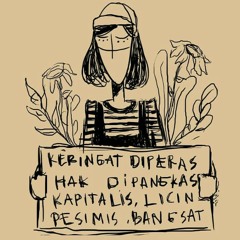 KERINGAT DIPERAS
HAK DIPANGKAS
KAPITALIS, LICIN
PESIMIS, BANGSAT